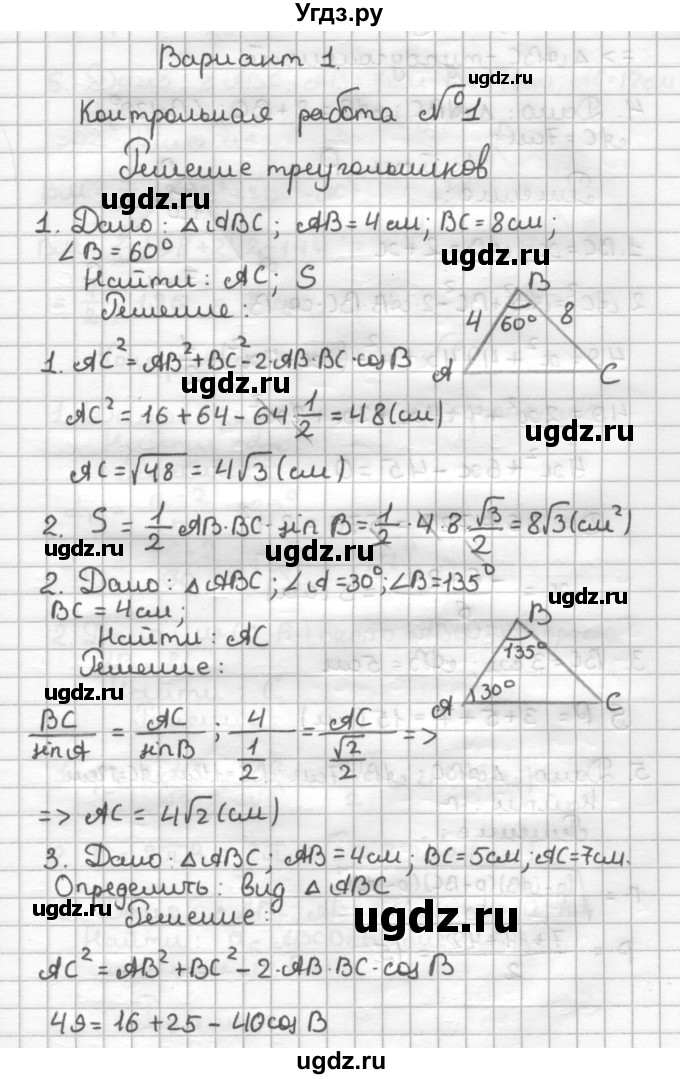 Угдз.ру
Вариант 1.
ugdz.ru
Контрольная работа №1
Решение треугольников
ugdz.ru
1. Дано: △ABC; AB = 4 см; BC = 8 см;
∠B = 60°
ugdz.ru
Найти: AC; S
Решение:
ugdz.ru
B
4 60° 8
A C
1. AC² = AB² + BC² - 2·AB·BC·cos B
ugdz.ru
AC² = 16 + 64 - 64·1/2 = 48 (см)
ugdz.ru
AC = √48 = 4√3 (см)
ugdz.ru
2. S = 1/2 AB·BC·sin B = 1/2·4·8·√3/2 = 8√3 (см²)
ugdz.ru
ugdz.ru
2. Дано: △ABC; ∠A = 30°; ∠B = 135°
BC = 4 см;
ugdz.ru
Найти: AC
Решение:
B
135°
A 30° C
ugdz.ru
BC/sin A = AC/sin B; 4/(1/2) = AC/(√2/2) =>
ugdz.ru
ugdz.ru
=> AC = 4√2 (см)
ugdz.ru
3. Дано: △ABC; AB = 4 см; BC = 5 см; AC = 7 см.
Определить: вид △ABC
ugdz.ru
Решение:
ugdz.ru
AC² = AB² + BC² - 2·AB·BC·cos B
ugdz.ru
49 = 16 + 25 - 40 cos B
ugdz.ru